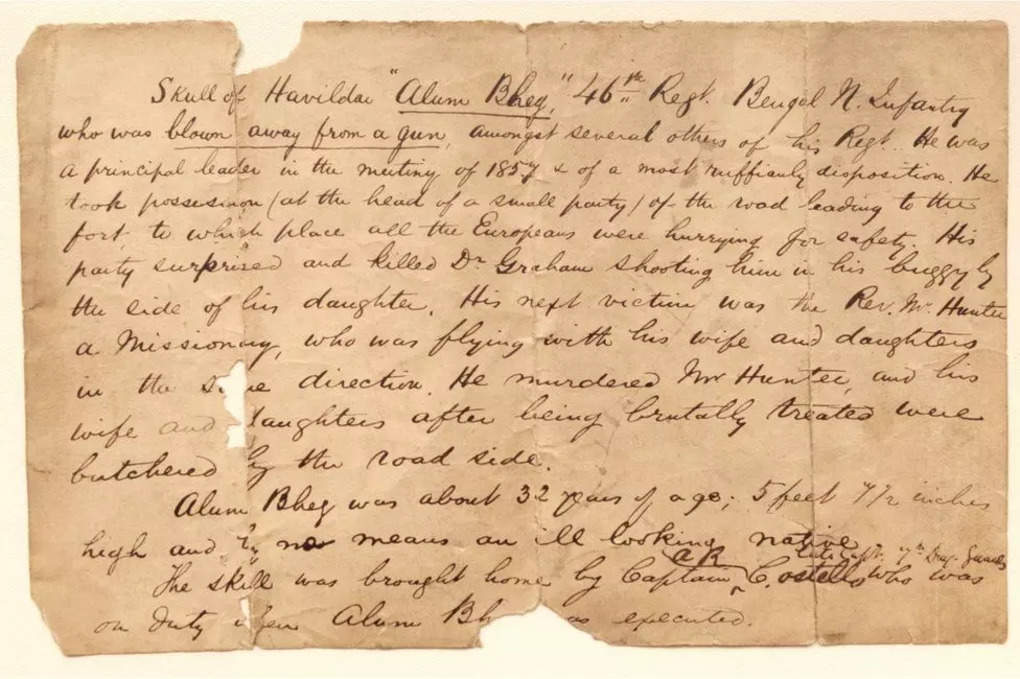 Skull of Havildar "Alum Bheg," 46th Regt. Bengal N. Infantry
who was blown away from a gun, amongst several others of his Regt. He was
a principal leader in the mutiny of 1857 & of a most ruffianly disposition. He
took possession (at the head of a small party) of the road leading to the
fort, to which place all the Europeans were hurrying for safety. His
party surprised and killed Dr. Graham shooting him in his buggy by
the side of his daughter. His next victim was the Rev. Mr. Hunter
a Missionary, who was flying with his wife and daughters
in the same direction. He murdered Mr Hunter, and his
wife and daughters after being brutally treated were
butchered by the road side.
Alum Bheg was about 32 years of age; 5 feet 7 1/2 inches
high and by no means an ill looking native
The skull was brought home by Captain A R Costello late Capt. 7th Drag. Guards who was
on duty when Alum Bh as executed.